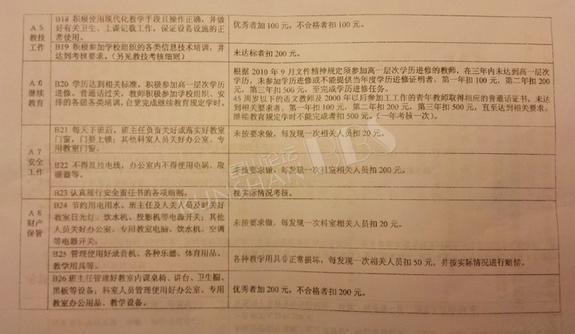 A 5
教技
工作
B18 积极使用现代化教学手段且操作正确，并做
好有关卫生、上课记载工作，保证设备设施的正
常使用。
优秀者加 100 元，不合格者扣 100 元。
B19 积极参加学校组织的各类信息技术培训，并
达到考核要求。（另见教技考核细则）
未达标者扣 200 元。
A 6
继续
教育
B20 学历达到相关标准，积极参加高一层次学历
进修。普通话过关，教师积极参加学校组织、安
排的各级各类培训，自觉完成继续教育规定学时。
根据 2010 年 9 月文件精神规定须参加高一层次学历进修的教师，在三年内未达到高一层次
学历，未参加学历进修或不能提供当年度学历进修证明者，第一年扣 100 元，第二年扣 200
元，第三年扣 500 元，至完成学历进修任务。
45 周岁以下的语文教师及 2000 年以后参加工作的青年教师取得相应的普通话证书，未达
到相关要求者，第一年扣 100 元，第二年扣 200 元，第三年扣 500 元，直至达到相关要求。
继续教育规定学时不能完成者扣 500 元。（一年考核一次）。
A 7
安全
工作
B21 每天下班后，班主任负责关好或落实好教室
门窗，门要上锁；其他科室人员关好办公室、专
用教室门窗。
未按要求做，每发现一次相关人员扣 20 元。
B22 不得乱拉电线，办公室内不得使用电锅、取
暖器等。
未按要求做，每发现一次科室相关人员扣 200 元。
B23 认真履行安全责任书的各项细则。
按实际情况考核。
A 8
财产
保管
B24 节约用电用水，班主任及人关人员及时关好
教室日光灯、饮水机、投影机等电源开关；其他
人员关好办公室、专用教室电脑、饮水机、空
调等电器开关。
未按要求做，每发现一次科室相关人员扣 20 元。
B25 管理使用好录音机、各种乐器、体育用品、
教学用具等。
各种教学用具非正常损坏，每发现一次相关人员扣 50 元，并按实际情况进行赔偿。
B26 班主任管理好教室内课桌椅、讲台、卫生橱、
黑板等设备；科室人员管理使用好办公室、专用
教室办公用品、教学设备。
优秀者加 200 元，不合格者扣 200 元。